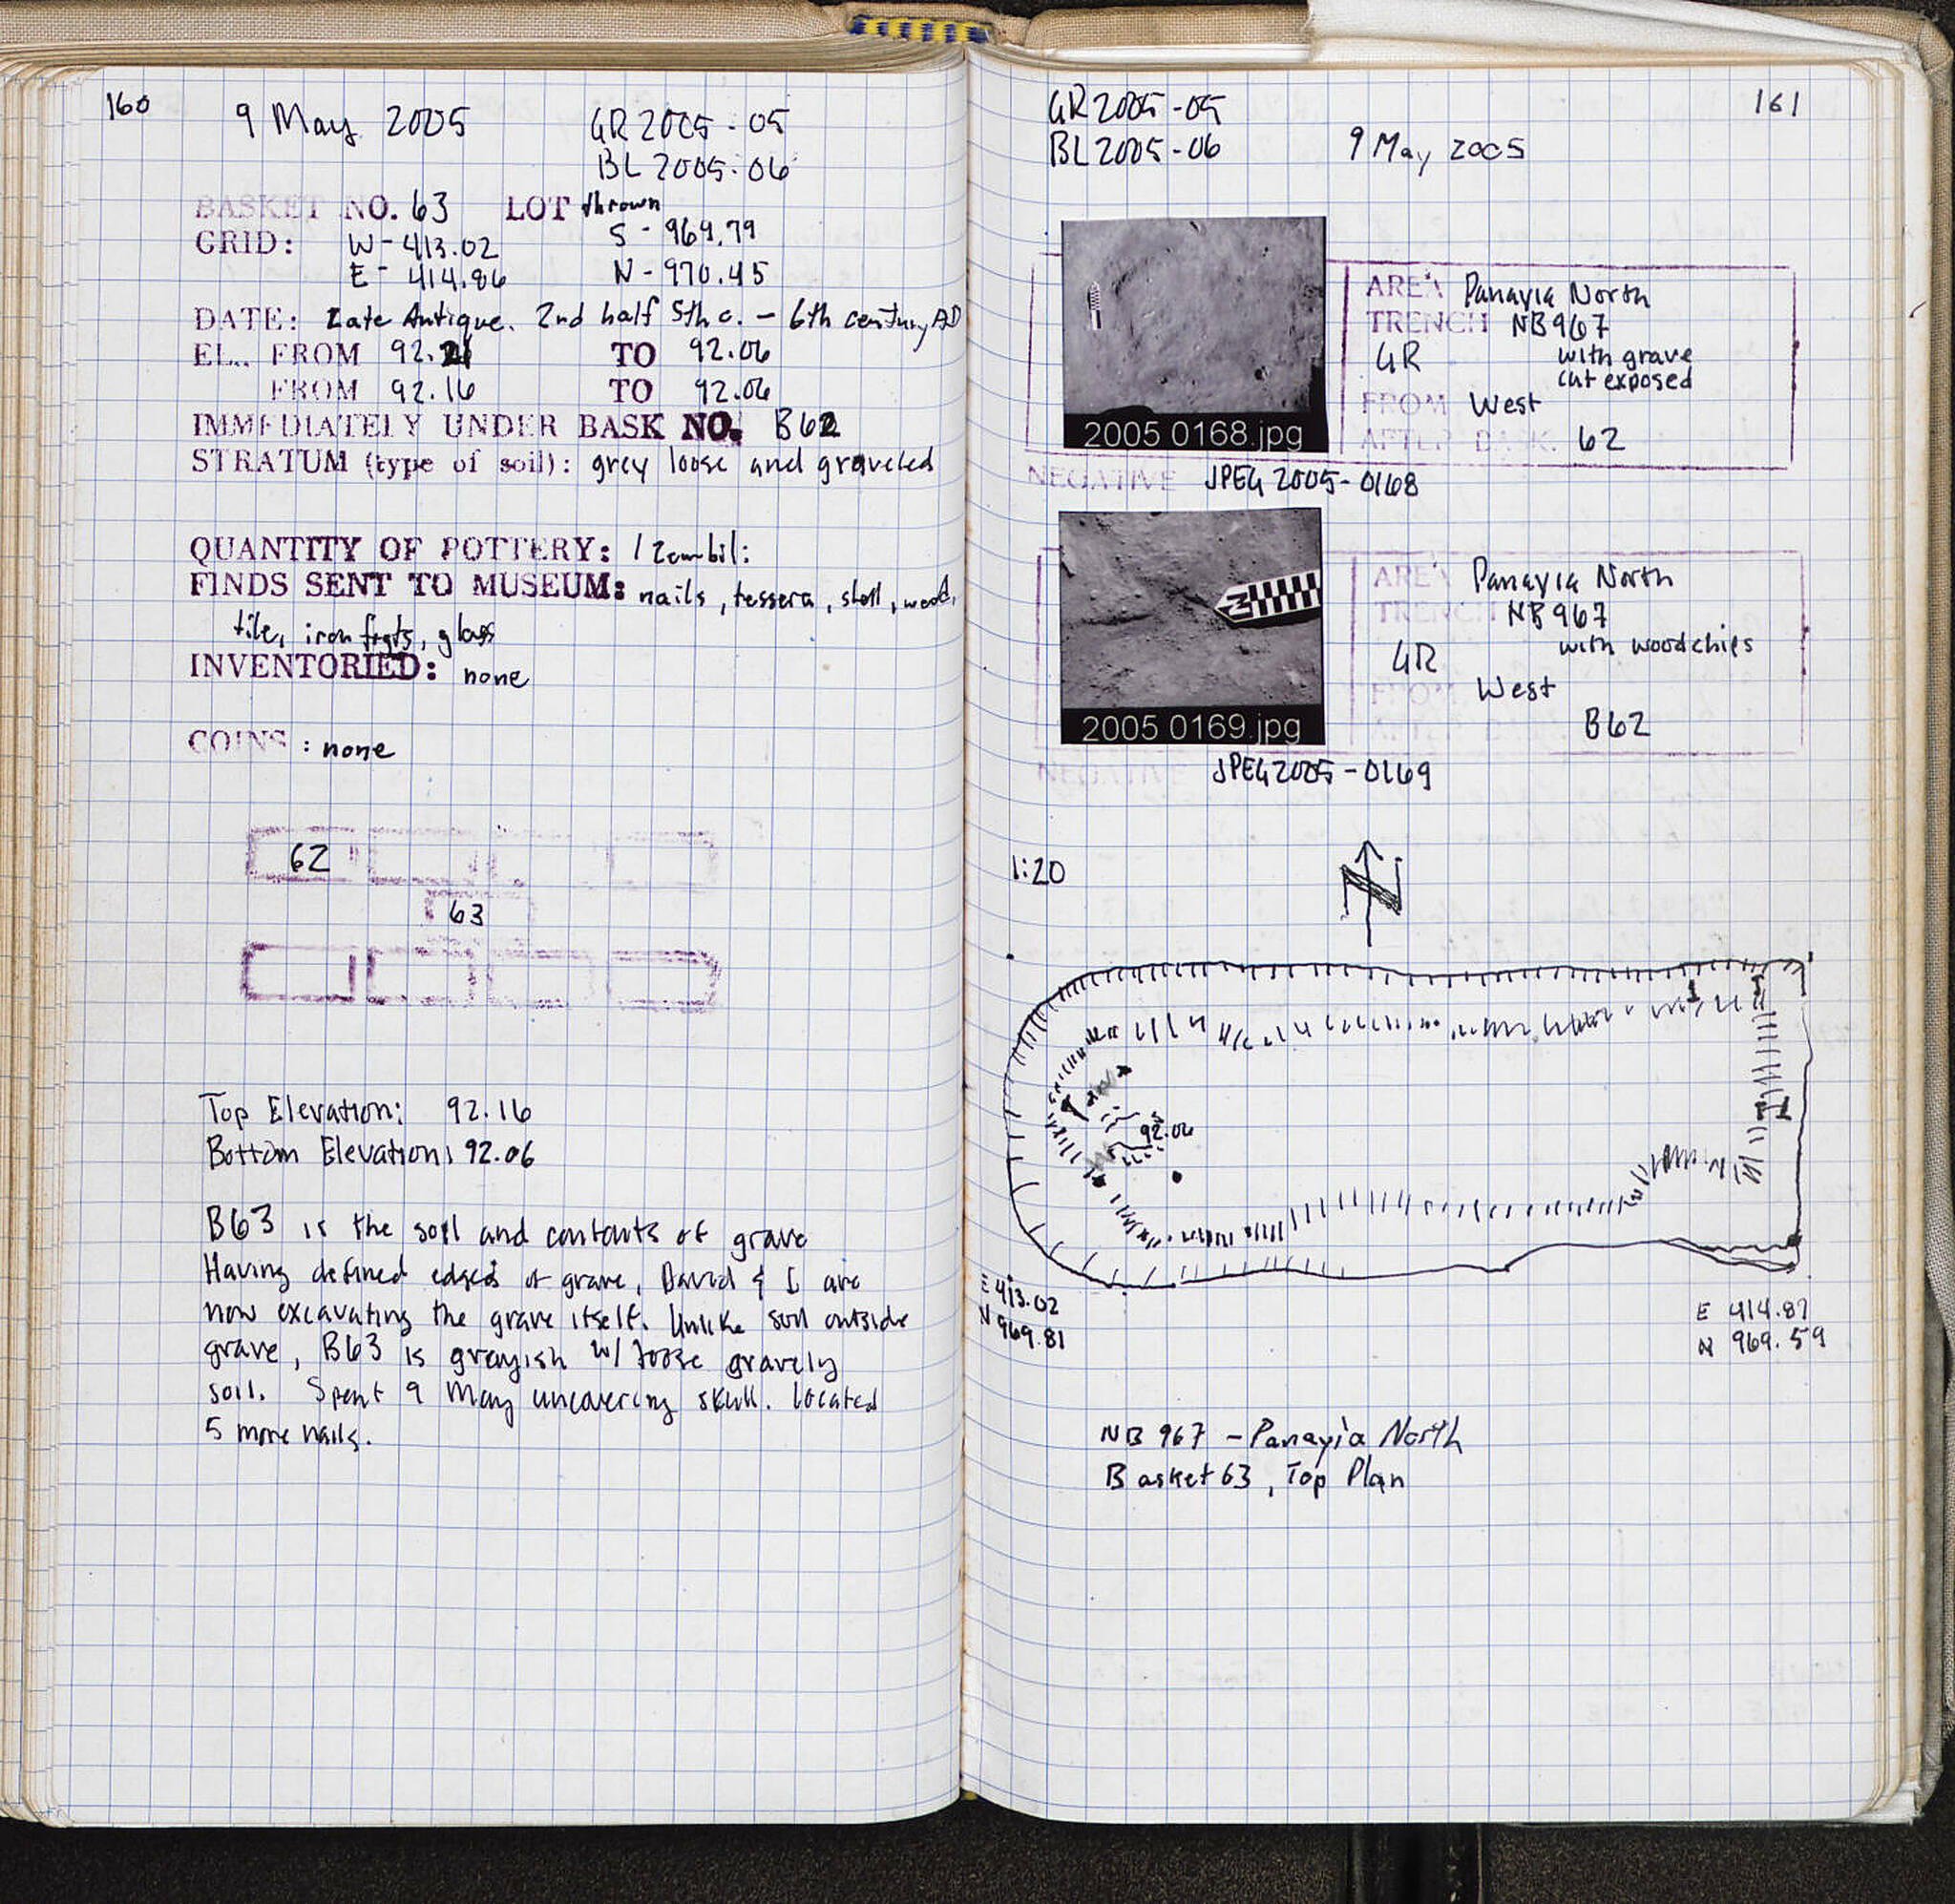 160
9 May 2005
GR 2005-05
BL 2005-06
BASKET NO. 63 LOT thrown
GRID: W-413.02 S-969.79
E-414.86 N-970.45
DATE: Late Antique. 2nd half 5th c. - 6th century AD
EL. FROM 92.21 TO 92.06
FROM 92.16 TO 92.06
IMMEDIATELY UNDER BASK NO. B62
STRATUM (type of soil): grey loose and graveled
QUANTITY OF POTTERY: 1 zambil:
FINDS SENT TO MUSEUM: nails, tessera, shell, wood,
tile, iron frgts, glass
INVENTORIED: none
COINS: none
62
63
Top Elevation: 92.16
Bottom Elevation: 92.06
B63 is the soil and contents of grave
Having defined edges of grave, David & I are
now excavating the grave itself. Unlike soil outside
grave, B63 is greyish w/ loose gravely
soil. Spent 9 May uncovering skull. Located
5 more nails.
GR 2005-05
BL 2005-06
9 May 2005
161
AREA Panayia North
TRENCH NB967
GR with grave
cut exposed
FROM West
AFTER BASK. 62
2005 0168.jpg
NEGATIVE JPEG 2005-0168
AREA Panayia North
TRENCH NB967
GR with woodchips
FROM West
AFTER BASK. B62
2005 0169.jpg
NEGATIVE JPEG 2005-0169
1:20
N
92.06
E 413.02
N 969.81
E 414.87
N 969.59
NB 967 - Panayia North
Basket 63, Top Plan